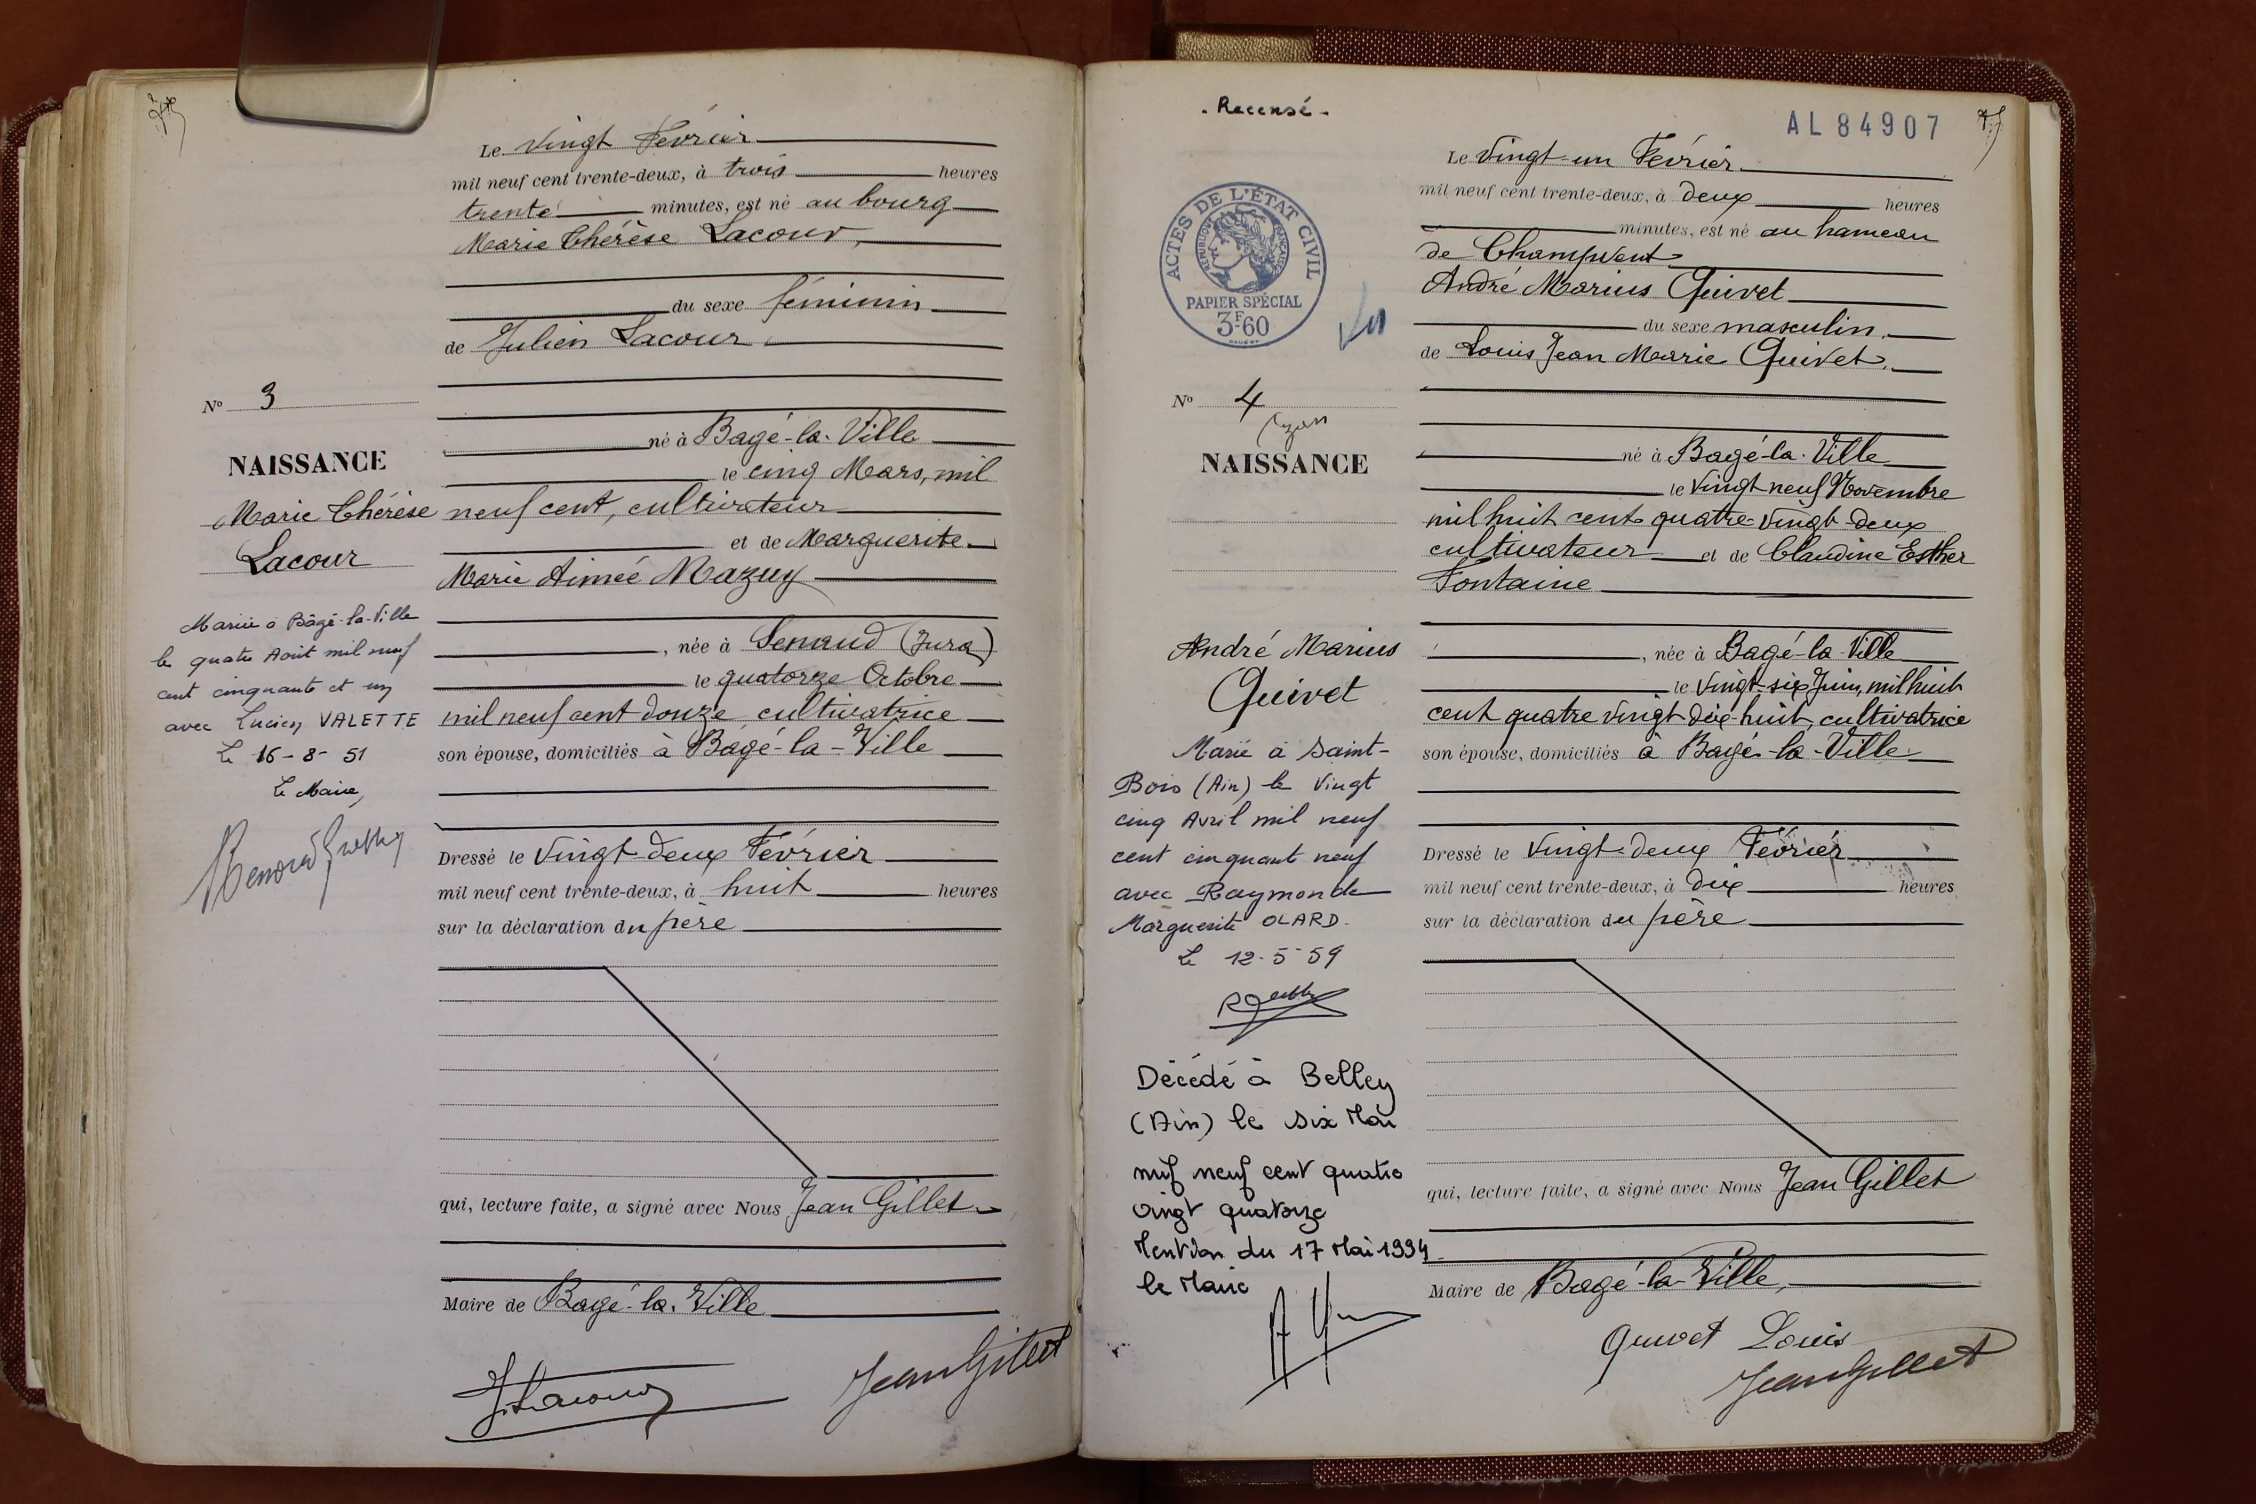 Le vingt Février
mil neuf cent trente-deux, à trois heures
trente minutes, est né au bourg
Marie Thérèse Lacour,
du sexe féminin
de Julien Lacour
né à Bagé-la-Ville
le cinq Mars, mil
neuf cent, cultivateur
et de Marguerite
Marie Aimée Mazuy
, née à Senaud (Jura)
le quatorze Octobre
mil neuf cent douze cultivatrice
son épouse, domiciliés à Bagé-la-Ville
Dressé le vingt-deux Février
mil neuf cent trente-deux, à huit heures
sur la déclaration du père
qui, lecture faite, a signé avec Nous Jean Gillet
Maire de Bagé-la-Ville
J. Lacour
Jean Gillet
No 3
NAISSANCE
Marie Thérèse
Lacour
Mariée à Bâgé-la-Ville
le quatre Août mil neuf
cent cinquante et un
avec Lucien VALETTE
Le 16-8-51
Le Maire,
- Recensé -
AL 84907
ACTES DE L'ÉTAT CIVIL
RÉPUBLIQUE FRANÇAISE
PAPIER SPÉCIAL
3F60
Le vingt-un Février
mil neuf cent trente-deux, à deux heures
minutes, est né au hameau
de Champvent
André Marius Quivet
du sexe masculin
de Louis Jean Marie Quivet
né à Bagé-la-Ville
le vingt neuf Novembre
mil huit cent quatre-vingt-deux
cultivateur et de Claudine Esther
Fontaine
, née à Bagé-la-Ville
le vingt-six Juin, mil huit
cent quatre vingt dix-huit, cultivatrice
son épouse, domiciliés à Bagé-la-Ville
Dressé le vingt-deux Février
mil neuf cent trente-deux, à dix heures
sur la déclaration du père
qui, lecture faite, a signé avec Nous Jean Gillet
Maire de Bagé-la-Ville,
Quivet Louis
Jean Gillet
No 4
NAISSANCE
André Marius
Quivet
Marié à Saint-
Bois (Ain) le vingt
cinq Avril mil neuf
cent cinquant neuf
avec Raymonde
Marguerite OLARD.
Le 12-5-59
Décédé à Belley
(Ain) le six Mai
mil neuf cent quatre
vingt quatorze
Mention du 17 Mai 1994
le Maire